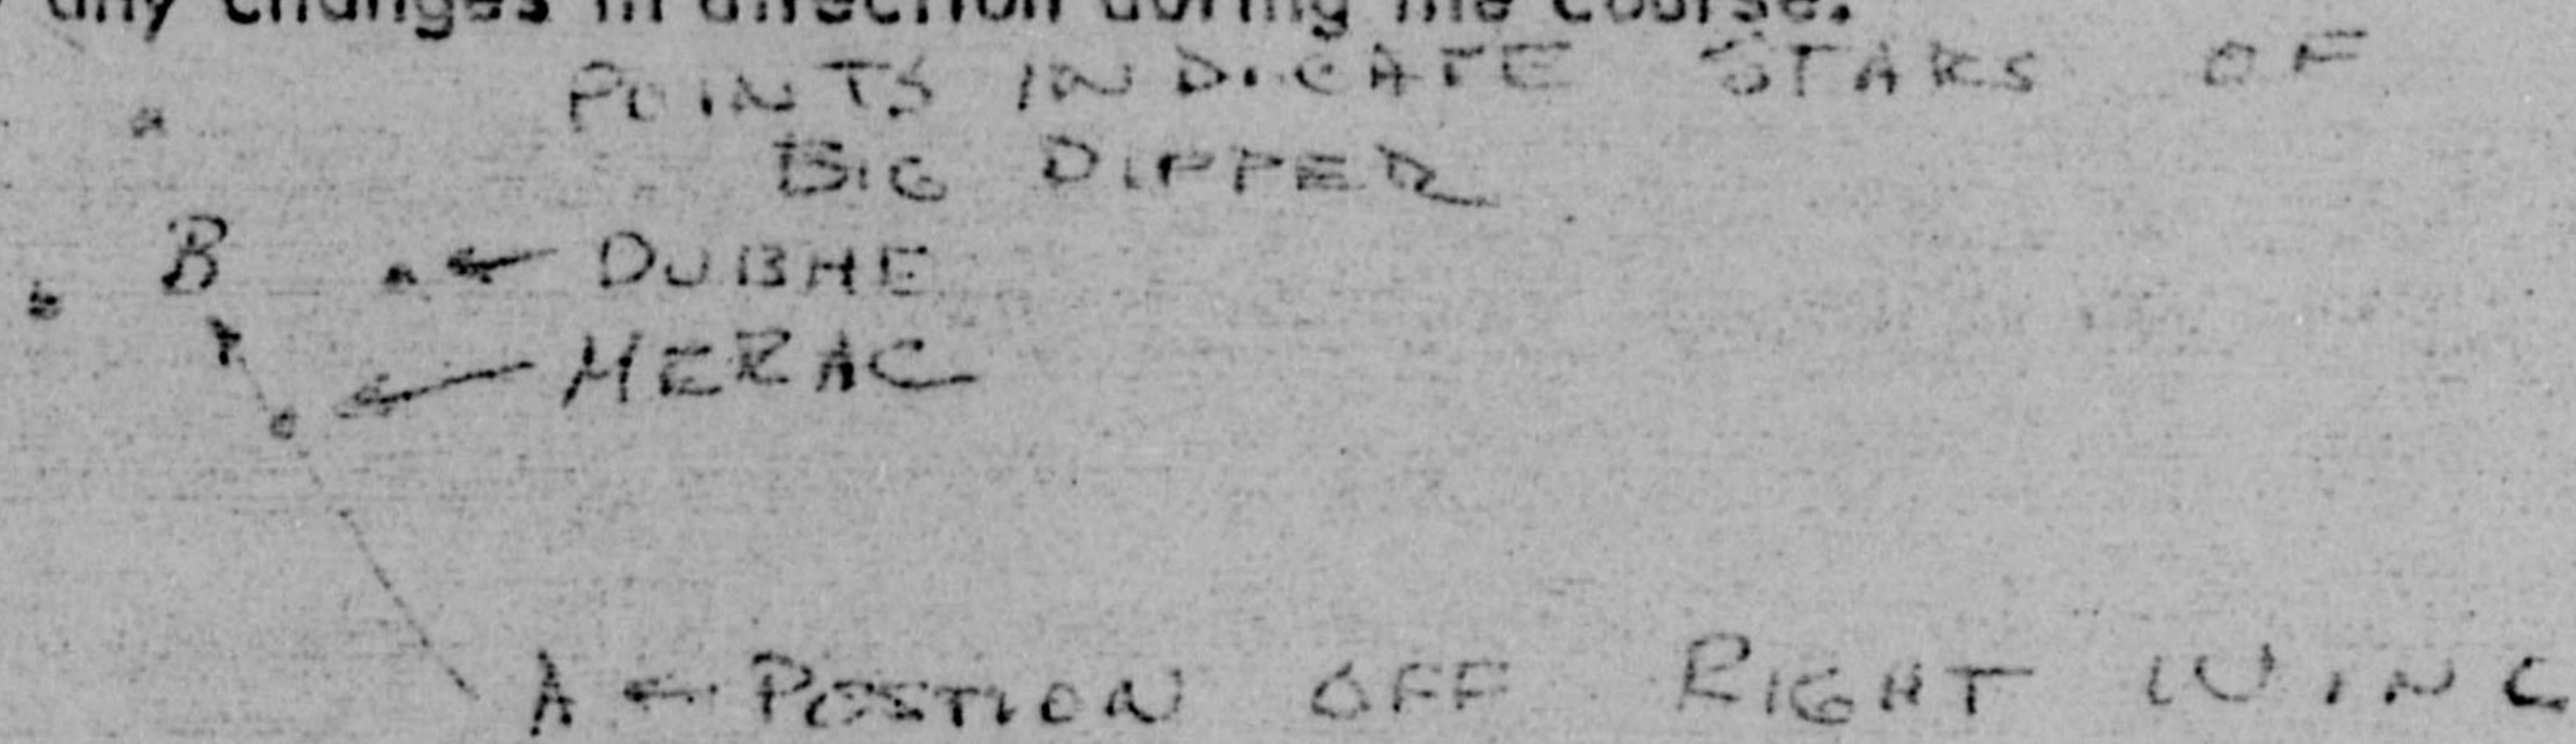 any changes in direction during the course.
POINTS INDICATE STARS OF
BIG DIPPER
B
DUBHE
MERAC
A POSITION OFF RIGHT WING